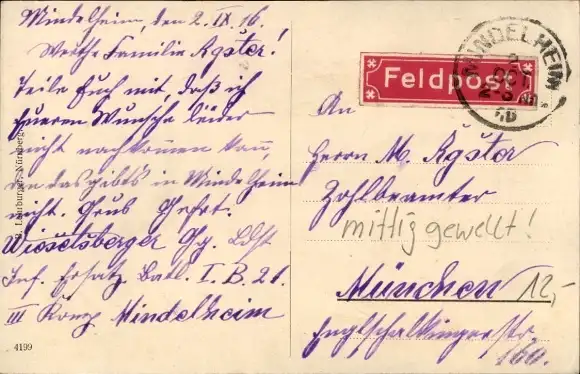 Mindelheim, den 2. IX. 16.
Werthe Familie Agster!
Teile Euch mit, daß ich
Eueren Wunsche leider
nicht nachkommen kan,
den das gibts in Mindelheim
nicht. Grus Gefrt.
Wieselsberger Gg. Ldst
Inf. Ersatz Batl. I. B. 21.
III Komp Mindelheim
4199
Feldpost
MINDELHEIM
An
Herrn M. Agster
Zohlbeamter
mittig gewellt!
München
12,-
Englschalkingerstr.
160.